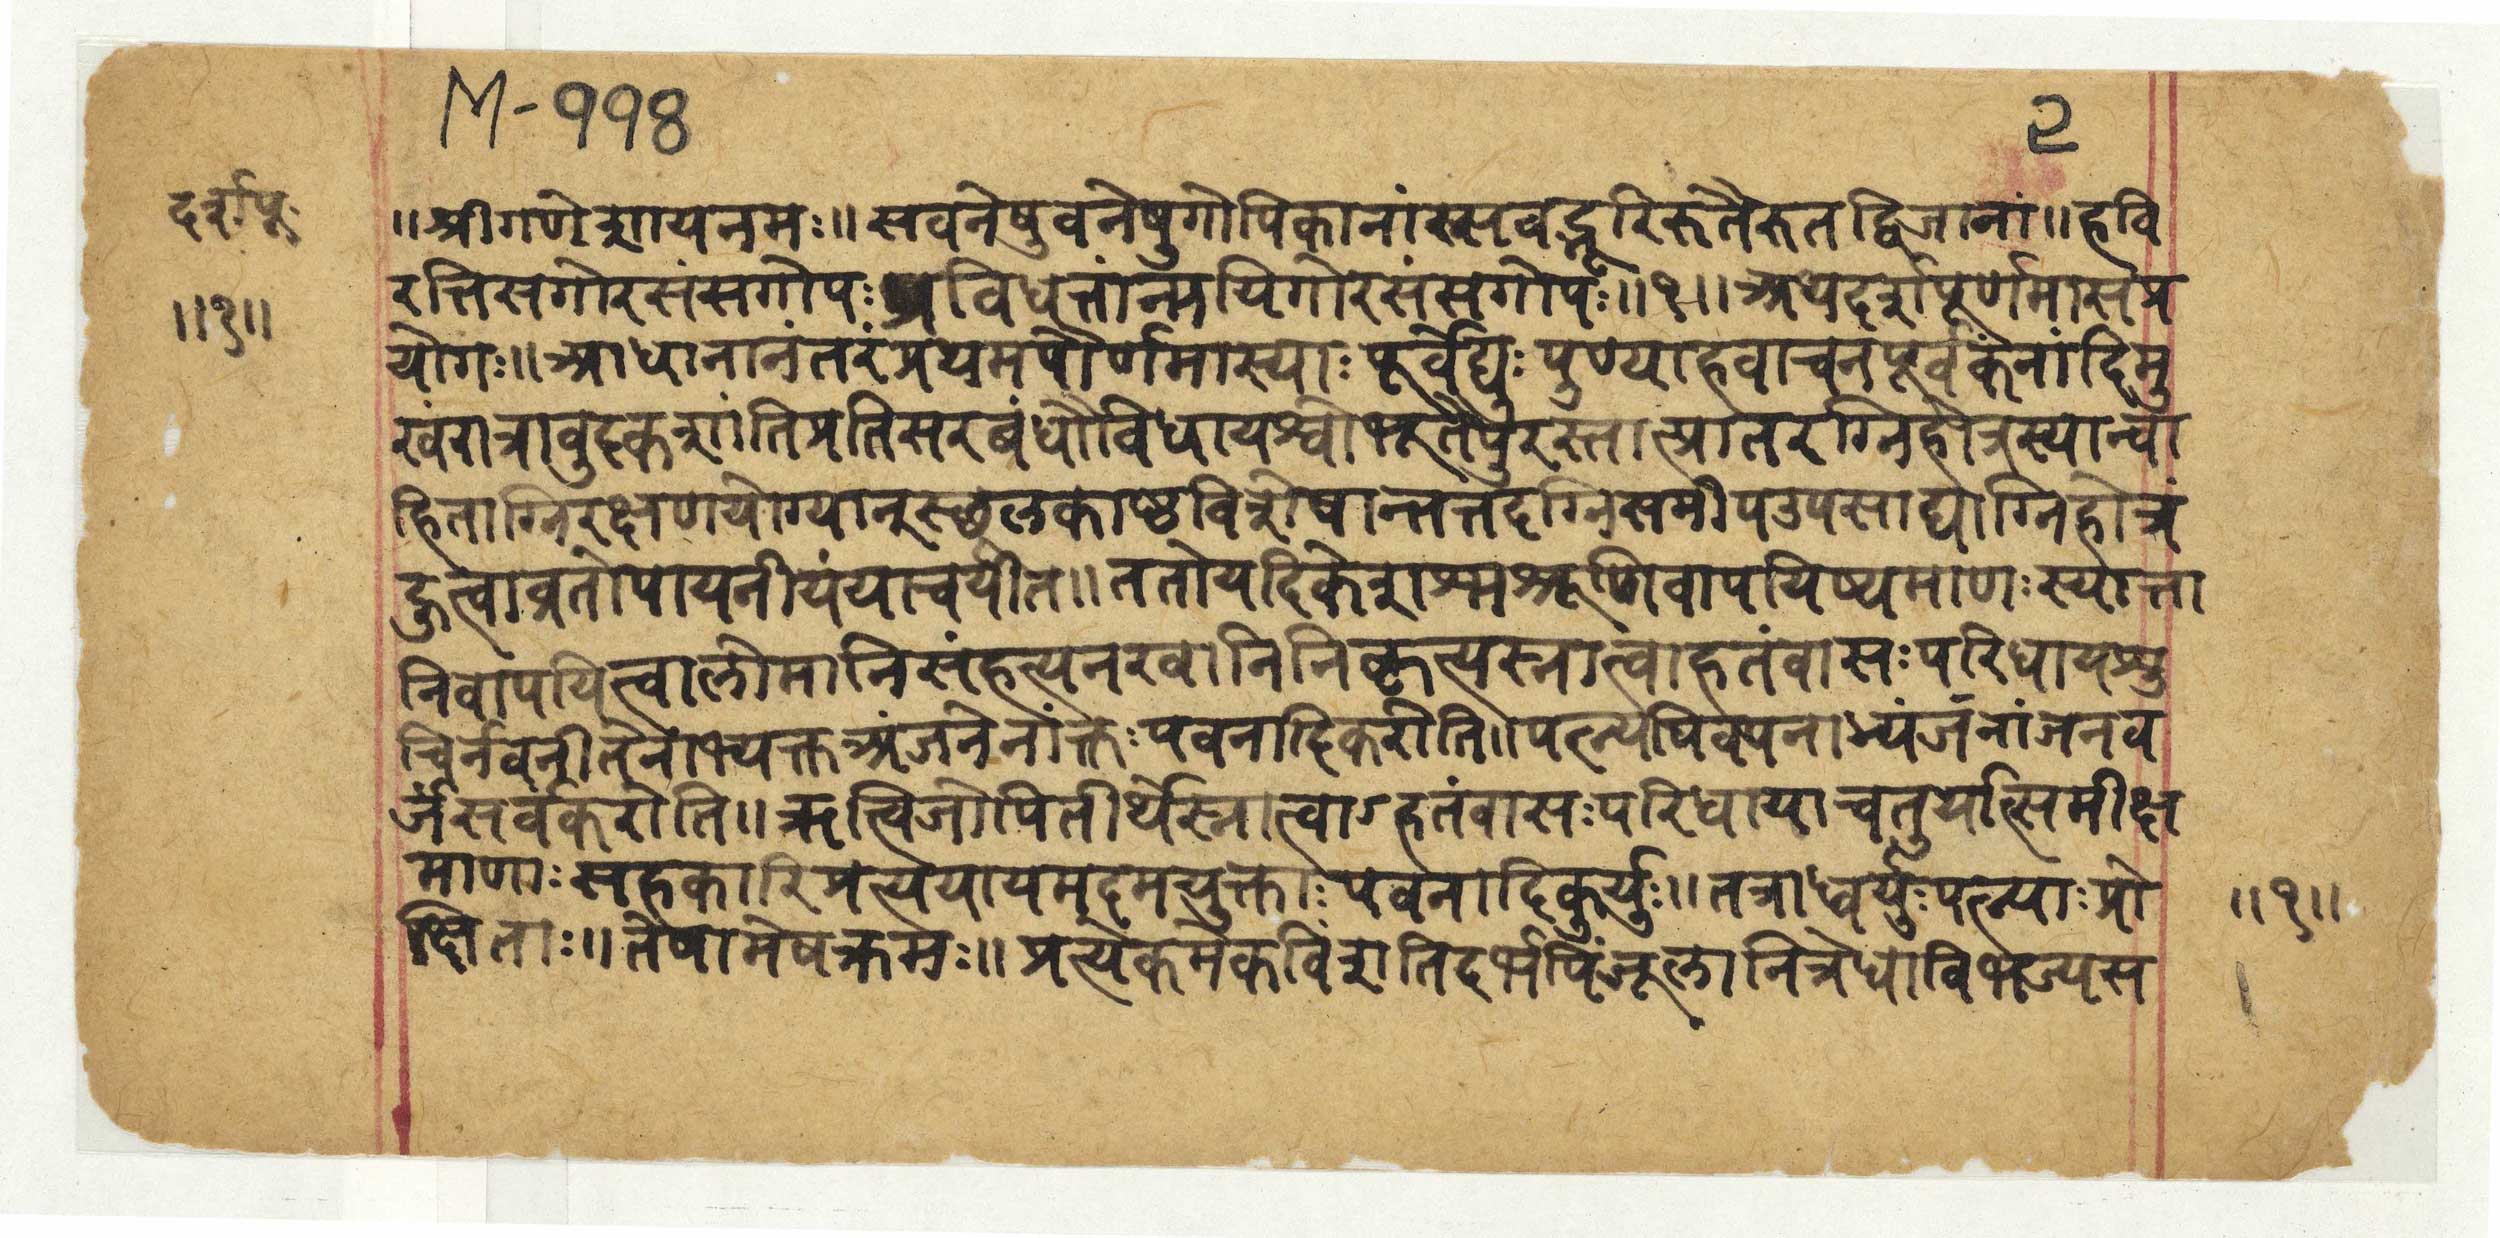 M-११४
२
दर्शपू.
॥१॥
॥श्रीगणेशायनमः॥सवनेषुवनेषुगोपिकानांस्सवद्भूरिरुतैरुतद्विजानां॥हवि
रत्तिसगोरसंसगोपःप्रविधत्तांन्मयिगोरसंसगोपः॥१॥अथदर्शपूर्णमासप्र
योगः॥आधानानंतरंप्रथमपौर्णमास्याःपूर्वेद्युःपुण्याहवाचनपूर्वकंनांदिमु
खंरात्रावुदकशांतिप्रतिसरबंधौविधायश्वोभूतेपुरस्तात्प्रातरग्निहोत्रस्यान्वा
हिताग्निरक्षणयोग्यानुस्छूलकाष्ठविशेषान्तत्तदग्निसमीपउपसाद्याग्निहोत्रं
हुत्वाव्रतोपायनीयंयाचयीत॥ततोयदिकेशश्मश्रूणिवापयिष्यमाणःस्यात्ता
निवापयित्वालोमानिसंहृत्यनखानिनिकृत्यस्नात्वाहतंवासःपरिधायशु
चिर्नवनीतेनाभ्यक्तअंजनेनांक्तःपवनादिकरोति॥पत्न्यपिवपनाभ्यंजनांजनव
र्जंसर्वंकरोति॥ऋत्विजोपितीर्थेस्नात्वाऽहतंवासःपरिधायाचतुर्यात्सिमीक्ष
माणाःसहकारिप्रत्ययायमुदमयुक्ताःपवनादिकुर्युः॥तत्राध्वर्युःपत्न्याःप्रो
क्षिताः॥तेषामेषक्रमः॥प्रत्येकमेकविंशतिदर्भपिंजूलानित्रेधाविभज्यस
॥१॥